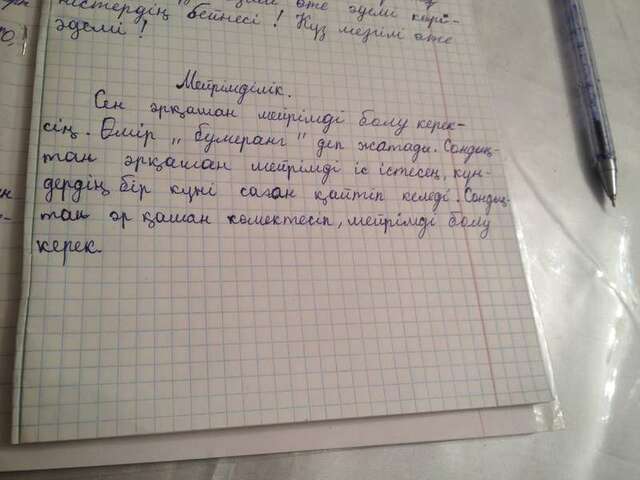 жемістердің бейнесі! Күз мезгілі өте
әдемі!
Мейрімділік.
Сен әрқашан мейрімді болу керек-
сің. Өмір ,, бумеранг " деп жатады. Сондық-
тан әрқашан мейрімді іс істесең, күн-
дердің бір күні саған қайтіп келеді. Сондық-
тан әр қашан көмектесіп, мейрімді болу
керек.